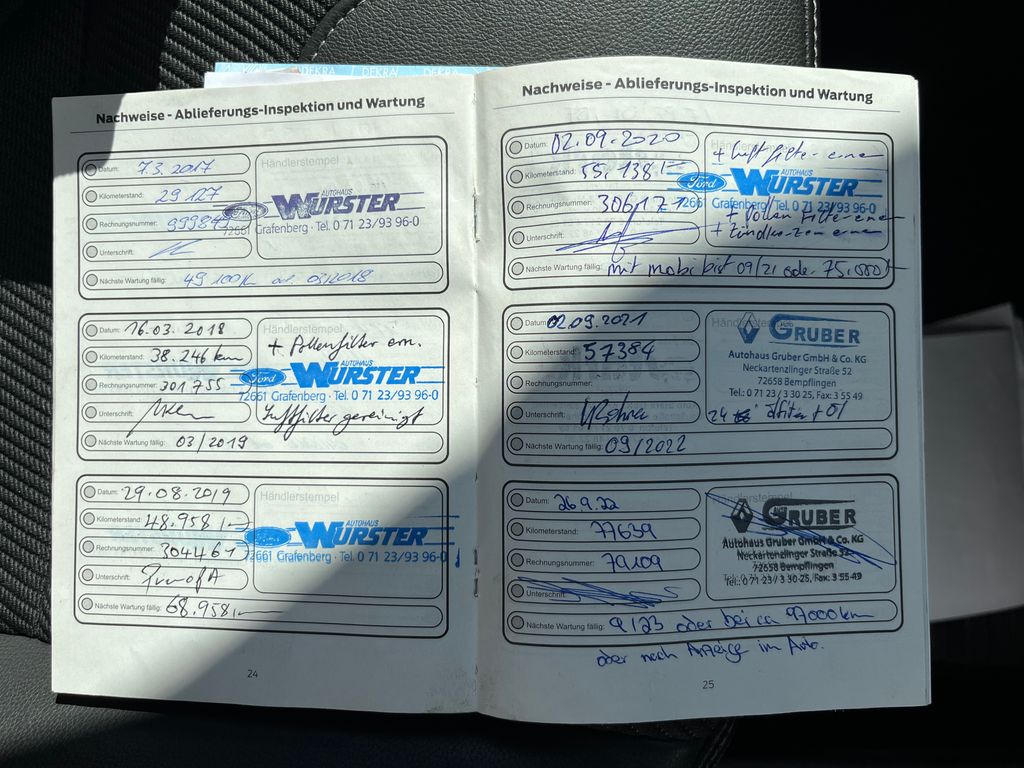 DEKRA DEKRA DEKRA
Nachweise - Ablieferungs-Inspektion und Wartung
Datum: 7.3.2017
Kilometerstand: 29127
Rechnungsnummer:
Unterschrift:
Nächste Wartung fällig: 49 100 km od. 03/2018
Händlerstempel
AUTOHAUS
Ford WURSTER
72661 Grafenberg · Tel. 0 71 23/93 96-0
Datum: 16.03.2018
Kilometerstand: 38.246 km
Rechnungsnummer: 301755
Unterschrift:
Nächste Wartung fällig: 03/2019
Händlerstempel
+ Pollenfilter ern.
AUTOHAUS
Ford WURSTER
72661 Grafenberg · Tel. 0 71 23/93 96-0
Luftfilter gereinigt
Datum: 29.08.2019
Kilometerstand: 48.958
Rechnungsnummer: 304461
Unterschrift:
Nächste Wartung fällig: 68.958
Händlerstempel
AUTOHAUS
Ford WURSTER
72661 Grafenberg · Tel. 0 71 23/93 96-0
24
Nachweise - Ablieferungs-Inspektion und Wartung
Datum: 02.09.2020
Kilometerstand: 55.138
Rechnungsnummer: 306171
Unterschrift:
Nächste Wartung fällig: mit mobi bist 09/21 oder 75.000
Händlerstempel
+ Luftfilter
AUTOHAUS
Ford WURSTER
72661 Grafenberg · Tel. 0 71 23/93 96-0
+ Pollenfilter
+ Zündkerzen
Datum: 02.09.2021
Kilometerstand: 57384
Rechnungsnummer:
Unterschrift:
Nächste Wartung fällig: 09/2022
Händlerstempel
GRUBER
Autohaus Gruber GmbH & Co. KG
Neckartenzlinger Straße 52
72658 Bempflingen
Tel.: 0 71 23 / 3 30 25, Fax: 3 55 49
Datum: 26.9.22
Kilometerstand: 77639
Rechnungsnummer: 79109
Unterschrift:
Nächste Wartung fällig: 9/23 oder bei ca 97000 km
oder nach Anzeige im Auto.
Händlerstempel
GRUBER
Autohaus Gruber GmbH & Co. KG
Neckartenzlinger Straße 52
72658 Bempflingen
Tel.: 0 71 23 / 3 30-25, Fax: 3 55 49
25